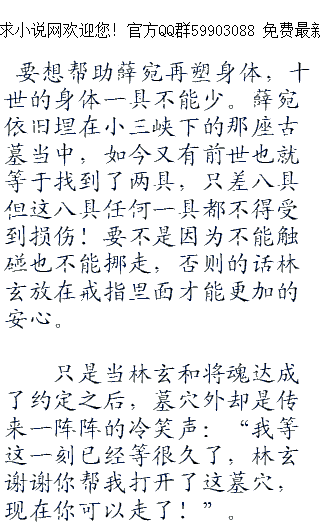 求小说网欢迎您！官方QQ群59903088 免费最新
要想帮助薛宛再塑身体，十
世的身体一具不能少。薛宛
依旧埋在小三峡下的那座古
墓当中，如今又有前世也就
等于找到了两具，只差八具
但这八具任何一具都不得受
到损伤！要不是因为不能触
碰也不能挪走，否则的话林
玄放在戒指里面才能更加的
安心。
只是当林玄和将魂达成
了约定之后，墓穴外却是传
来一阵阵的冷笑声：“我等
这一刻已经等很久了，林玄
谢谢你帮我打开了这墓穴，
现在你可以走了！”。